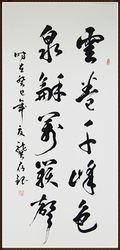 雲卷千峰色
泉龢萬籟聲
时在癸巳年夏